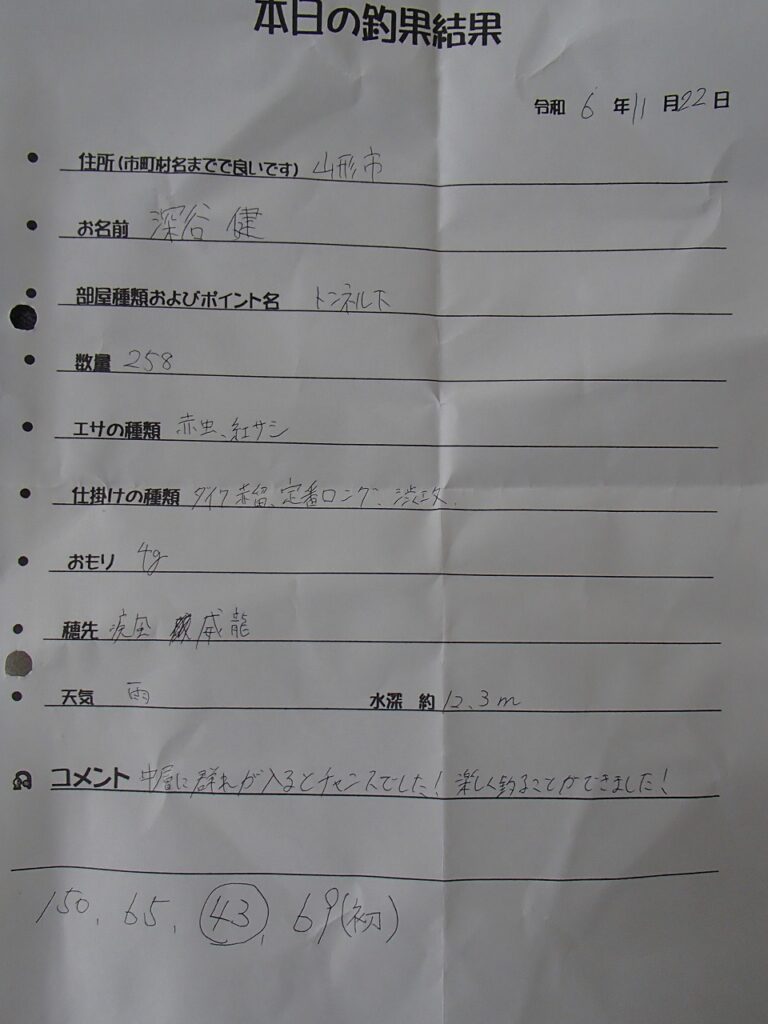 本日の釣果結果
令和 6 年 11 月 22 日
住所(市町村名までで良いです) 山形市
お名前 深谷 健
部屋種類およびポイント名 トンネル下
数量 258
エサの種類 赤虫、紅サシ
仕掛けの種類 ダイワ 定番ロング、渋攻
おもり 4g
穂先 疾風 威龍
天気 雨 水深 約 12.3m
コメント 中層に群れが入るとチャンスでした! 楽しく釣ることができました!
150, 65, 43, 69(初)